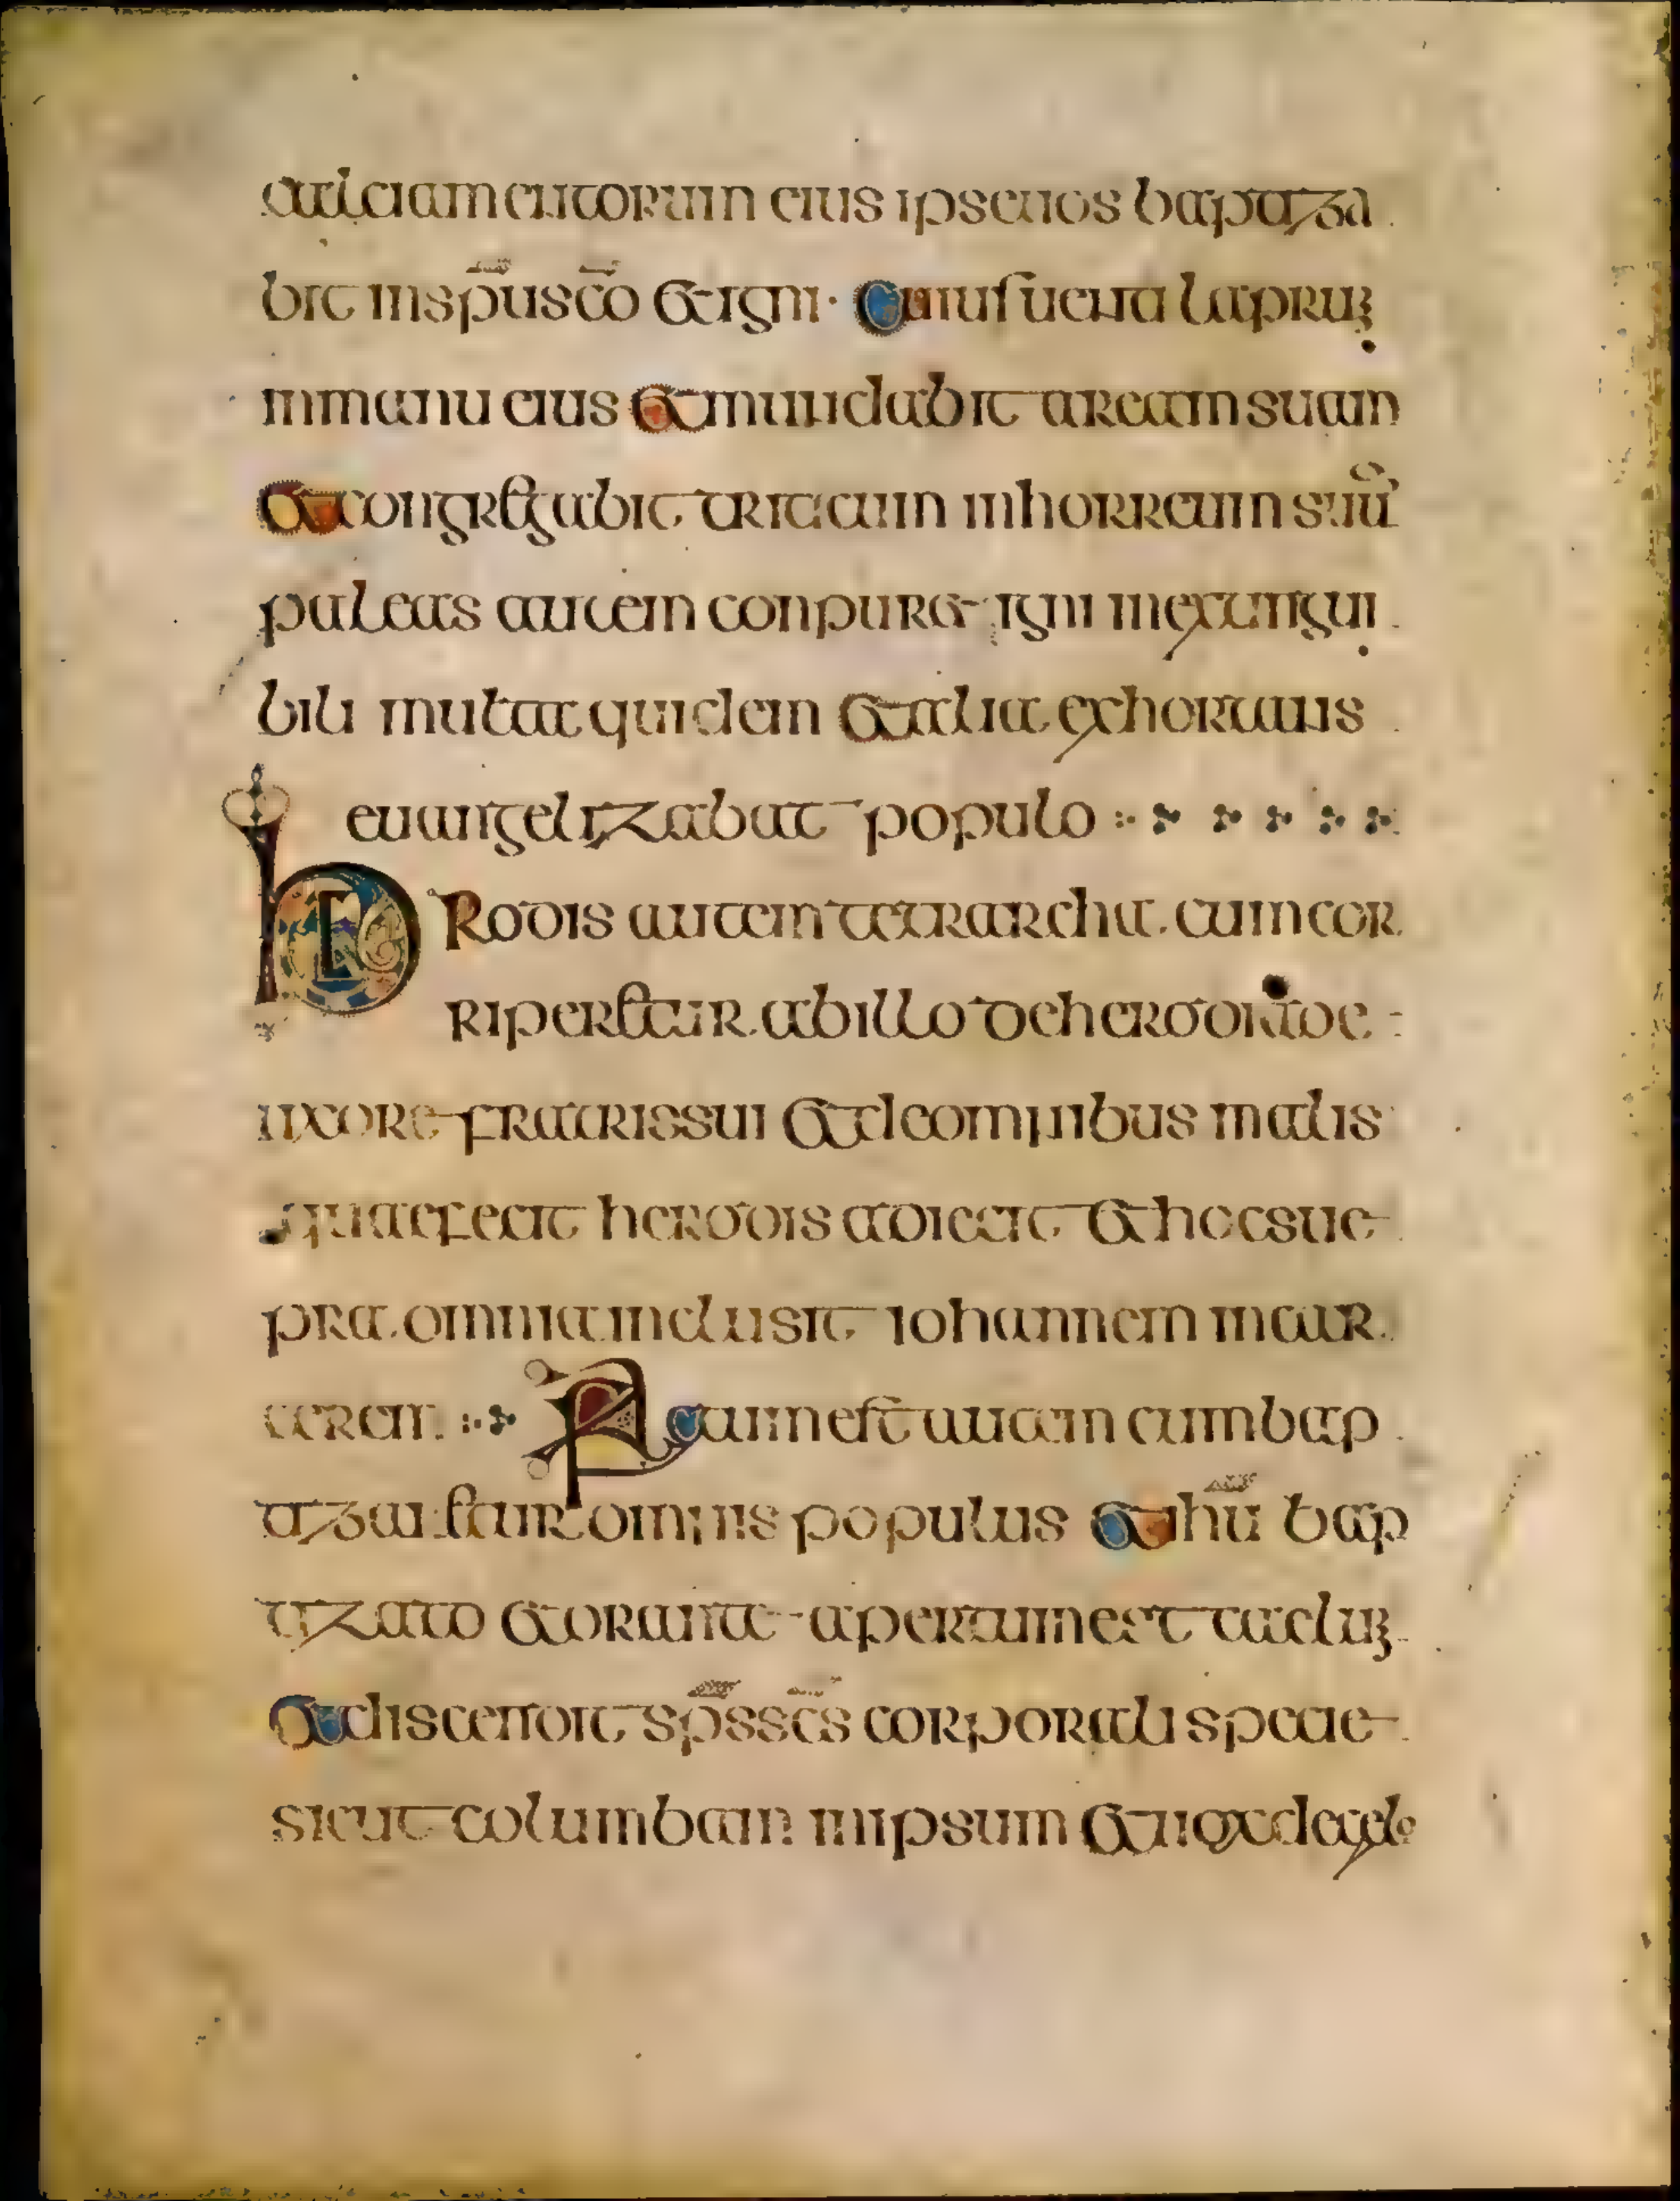 calciamentorum eius ipse uos baptiza
bit in sp̄u sc̄o et igni · Cuius uentilabrum
in manu eius et mundabit aream suam
et congregabit triticum in horreum suū
paleas autem conpuret igni inextingui
bili multa quidem et alia exhortans
euangelizabat populo
hERodis autem tetrarcha cum cor
riperetur ab illo de herodiade
uxore fratris sui et de omnibus malis
quae fecit herodis adiecit et hoc sue
pra omnia inclusit iohannem in car
cerem Factum est autem cum bap
tizaretur omnis populus et ihū bap
tizato et orante apertum est caelum
et discendit sp̄s sc̄s corporali specie
sicut columbam in ipsum et uox de caelo